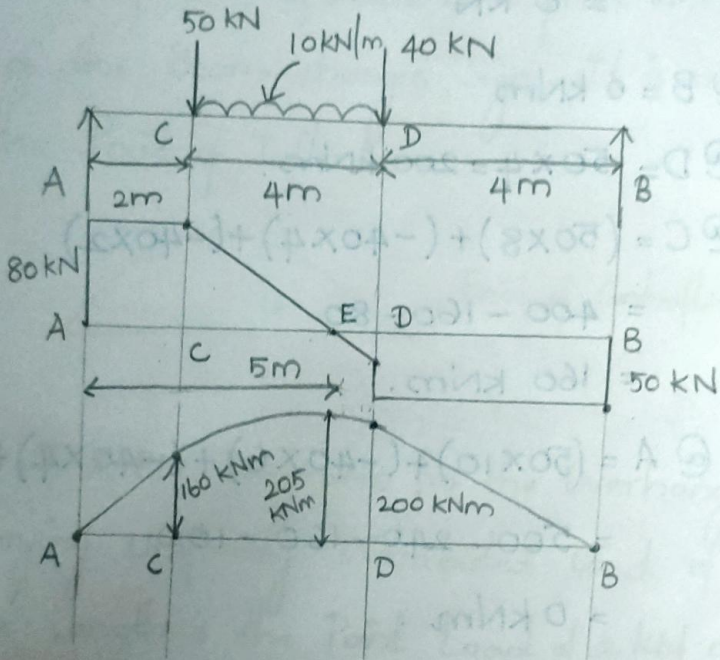 50 KN
10KN/m 40 KN
C D
A 2m 4m 4m B
80KN
A E D B
C
5m 50 KN
160 KNm 205 KNm 200 KNm
A C D B